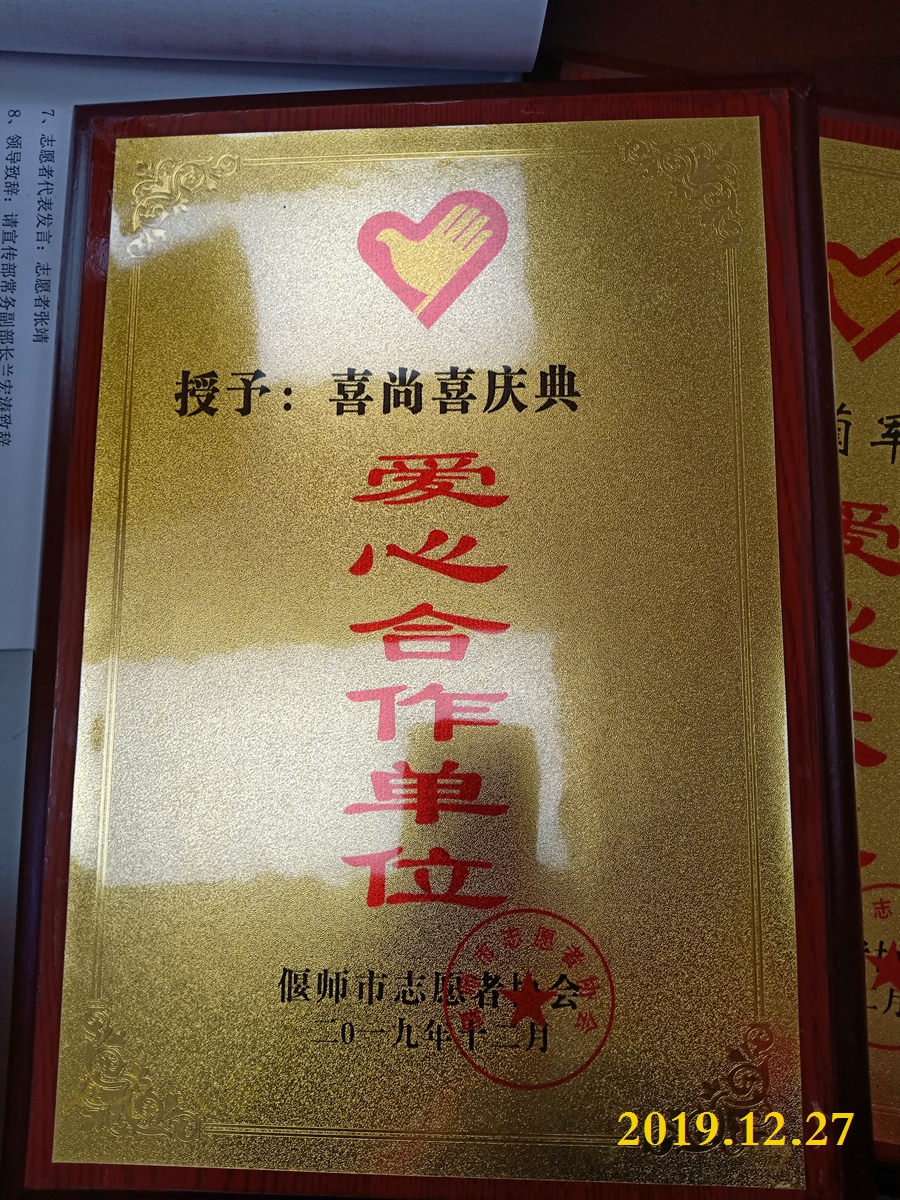 7、志愿者代表发言：志愿者张靖
8、领导致辞：请宣传部常务副部长兰宏涛致辞
授予：喜尚喜庆典
爱心合作单位
偃师市志愿者协会
二0一九年十二月
市志愿者协会
军
爱
志
二月
2019.12.27